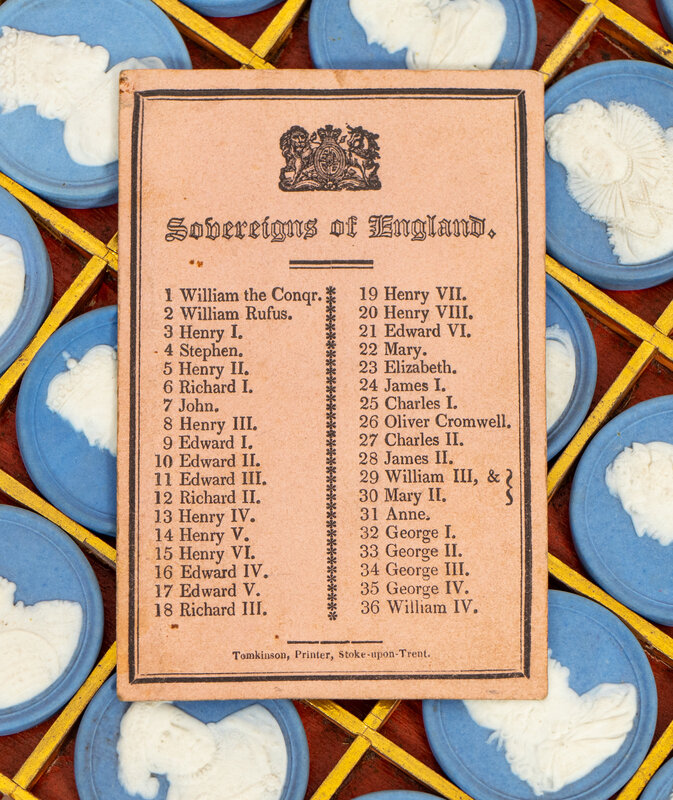 Sovereigns of England.
1 William the Conqr.
2 William Rufus.
3 Henry I.
4 Stephen.
5 Henry II.
6 Richard I.
7 John.
8 Henry III.
9 Edward I.
10 Edward II.
11 Edward III.
12 Richard II.
13 Henry IV.
14 Henry V.
15 Henry VI.
16 Edward IV.
17 Edward V.
18 Richard III.
19 Henry VII.
20 Henry VIII.
21 Edward VI.
22 Mary.
23 Elizabeth.
24 James I.
25 Charles I.
26 Oliver Cromwell.
27 Charles II.
28 James II.
29 William III, &
30 Mary II.
31 Anne.
32 George I.
33 George II.
34 George III.
35 George IV.
36 William IV.
Tomkinson, Printer, Stoke-upon-Trent.